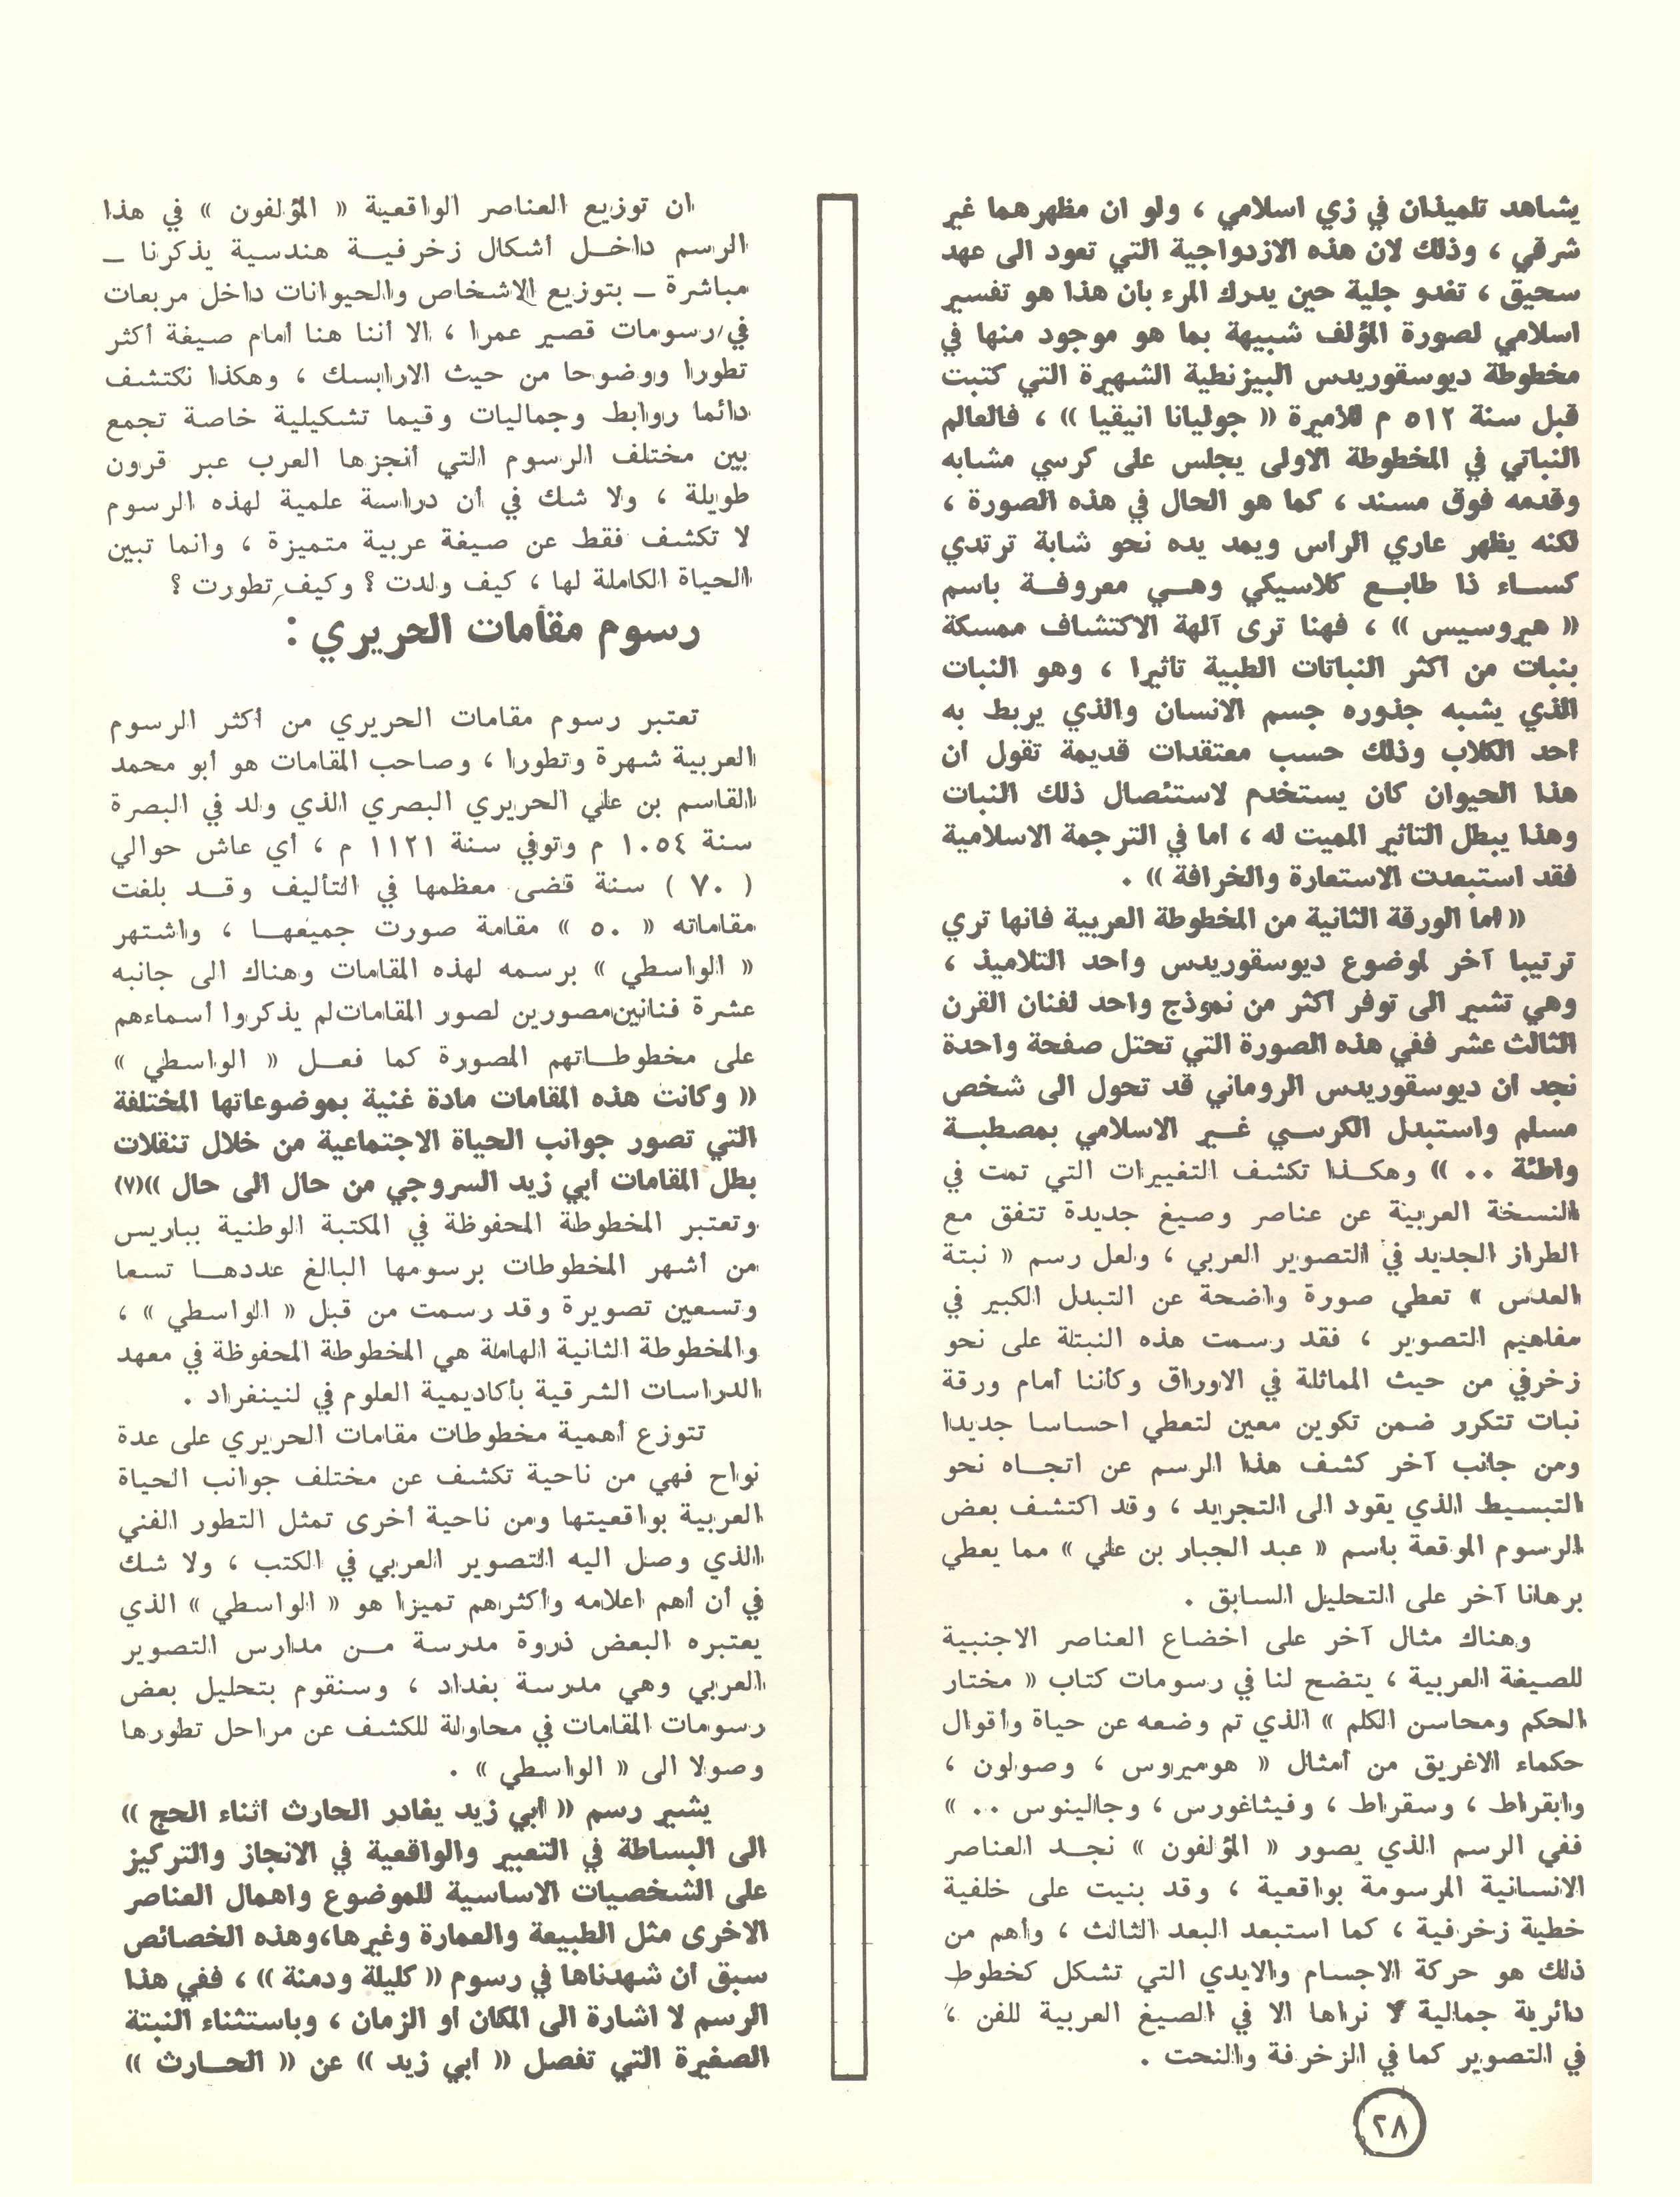 يشاهد تلميذان في زي اسلامي ، ولو ان مظهرهما غير
شرقي ، وذلك لان هذه الازدواجية التي تعود الى عهد
سحيق ، تغدو جلية حين يدرك المرء بان هذا هو تفسير
اسلامي لصورة المؤلف شبيهة بما هو موجود منها في
مخطوطة ديوسقوريدس البيزنطية الشهيرة التي كتبت
قبل سنة ٥١٢ م للأميرة (( جوليانا انيقيا )) ، فالعالم
النباتي في المخطوطة الاولى يجلس على كرسي مشابه
وقدمه فوق مسند ، كما هو الحال في هذه الصورة ،
لكنه يظهر عاري الراس ويمد يده نحو شابة ترتدي
كساء ذا طابع كلاسيكي وهي معروفة باسم
(( هيروسيس )) ، فهنا ترى آلهة الاكتشاف ممسكة
بنبات من اكثر النباتات الطبية تاثيرا ، وهو النبات
الذي يشبه جذوره جسم الانسان والذي يربط به
احد الكلاب وذلك حسب معتقدات قديمة تقول ان
هذا الحيوان كان يستخدم لاستئصال ذلك النبات
وهذا يبطل التاثير المميت له ، اما في الترجمة الاسلامية
فقد استبعدت الاستعارة والخرافة )) .
(( اما الورقة الثانية من المخطوطة العربية فانها تري
ترتيبا آخر لموضوع ديوسقوريدس واحد التلاميذ ،
وهي تشير الى توفر اكثر من نموذج واحد لفنان القرن
الثالث عشر ففي هذه الصورة التي تحتل صفحة واحدة
نجد ان ديوسقوريدس الروماني قد تحول الى شخص
مسلم واستبدل الكرسي غير الاسلامي بمصطبة
واطئة .. )) وهكذا تكشف التغييرات التي تمت في
النسخة العربية عن عناصر وصيغ جديدة تتفق مع
الطراز الجديد في التصوير العربي ، ولعل رسم « نبتة
العدس » تعطي صورة واضحة عن التبدل الكبير في
مفاهيم التصوير ، فقد رسمت هذه النبتة على نحو
زخرفي من حيث المماثلة في الاوراق وكأننا أمام ورقة
نبات تتكرر ضمن تكوين معين لتعطي احساسا جديدا
ومن جانب آخر كشف هذا الرسم عن اتجاه نحو
التبسيط الذي يقود الى التجريد ، وقد اكتشف بعض
الرسوم الموقعة باسم « عبد الجبار بن علي » مما يعطي
برهانا آخر على التحليل السابق .
وهناك مثال آخر على اخضاع العناصر الاجنبية
للصيغة العربية ، يتضح لنا في رسومات كتاب « مختار
الحكم ومحاسن الكلم » الذي تم وضعه عن حياة وأقوال
حكماء الاغريق من أمثال « هوميروس ، وصولون ،
وابقراط ، وسقراط ، وفيثاغورس ، وجالينوس .. »
ففي الرسم الذي يصور « المؤلفون » نجد العناصر
الانسانية المرسومة بواقعية ، وقد بنيت على خلفية
خطية زخرفية ، كما استبعد البعد الثالث ، وأهم من
ذلك هو حركة الاجسام والايدي التي تشكل كخطوط
دائرية جمالية لا نراها الا في الصيغ العربية للفن ،
في التصوير كما في الزخرفة والنحت .
ان توزيع العناصر الواقعية « المؤلفون » في هذا
الرسم داخل أشكال زخرفية هندسية يذكرنا _
مباشرة _ بتوزيع الاشخاص والحيوانات داخل مربعات
في رسومات قصير عمرا ، الا أننا هنا أمام صيغة أكثر
تطورا ووضوحا من حيث الارابسك ، وهكذا نكتشف
دائما روابط وجماليات وقيما تشكيلية خاصة تجمع
بين مختلف الرسوم التي أنجزها العرب عبر قرون
طويلة ، ولا شك في أن دراسة علمية لهذه الرسوم
لا تكشف فقط عن صيغة عربية متميزة ، وانما تبين
الحياة الكاملة لها ، كيف ولدت ؟ وكيف تطورت ؟
رسوم مقامات الحريري :
تعتبر رسوم مقامات الحريري من أكثر الرسوم
العربية شهرة وتطورا ، وصاحب المقامات هو أبو محمد
القاسم بن علي الحريري البصري الذي ولد في البصرة
سنة ١٠٥٤ م وتوفي سنة ١١٢١ م ، أي عاش حوالي
( ٧٠ ) سنة قضى معظمها في التأليف وقد بلغت
مقاماته « ٥٠ » مقامة صورت جميعها ، واشتهر
« الواسطي » برسمه لهذه المقامات وهناك الى جانبه
عشرة فنانين مصورين لصور المقامات لم يذكروا أسماءهم
على مخطوطاتهم المصورة كما فعل « الواسطي »
(( وكانت هذه المقامات مادة غنية بموضوعاتها المختلفة
التي تصور جوانب الحياة الاجتماعية من خلال تنقلات
بطل المقامات أبي زيد السروجي من حال الى حال ))(٧)
وتعتبر المخطوطة المحفوظة في المكتبة الوطنية بباريس
من أشهر المخطوطات برسومها البالغ عددها تسعا
وتسعين تصويرة وقد رسمت من قبل « الواسطي » ،
والمخطوطة الثانية الهامة هي المخطوطة المحفوظة في معهد
الدراسات الشرقية بأكاديمية العلوم في لنينغراد .
تتوزع أهمية مخطوطات مقامات الحريري على عدة
نواح فهي من ناحية تكشف عن مختلف جوانب الحياة
العربية بواقعيتها ومن ناحية أخرى تمثل التطور الفني
الذي وصل اليه التصوير العربي في الكتب ، ولا شك
في أن أهم اعلامه وأكثرهم تميزا هو « الواسطي » الذي
يعتبره البعض ذروة مدرسة من مدارس التصوير
العربي وهي مدرسة بغداد ، وسنقوم بتحليل بعض
رسومات المقامات في محاولة للكشف عن مراحل تطورها
وصولا الى « الواسطي » .
يشير رسم (( أبي زيد يغادر الحارث اثناء الحج ))
الى البساطة في التعبير والواقعية في الانجاز والتركيز
على الشخصيات الاساسية للموضوع واهمال العناصر
الاخرى مثل الطبيعة والعمارة وغيرها،وهذه الخصائص
سبق ان شهدناها في رسوم (( كليلة ودمنة )) ، ففي هذا
الرسم لا اشارة الى المكان او الزمان ، وباستثناء النبتة
الصغيرة التي تفصل (( ابي زيد )) عن (( الحارث ))
٢٨